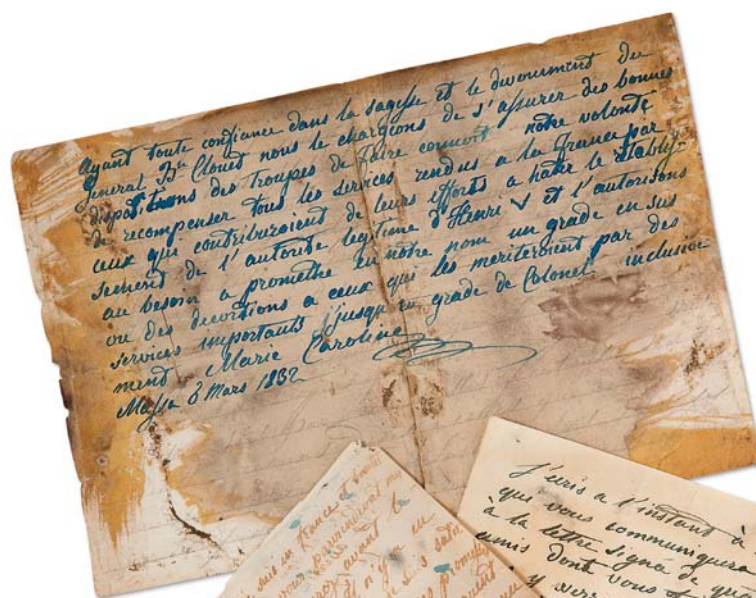 ayant toute confiance dans la sagesse et le devouement du
General Bn Clouet nous le chargeons de s'assurer des bonnes
dispositions des troupes de faire connoit notre volonté
de recompenser tous les services rendus a la france par
ceux qui contribueroient de leurs efforts a hater le établis-
sement de l'autorité legitime d'Henri V et l'autorisons
au besoin a promettre en notre nom un grade en sus
ou des decortions a ceux qui les meriteroient par des
services importants jusqu'au grade de Colonel inclusive
ment Marie Caroline
Massa 3 Mars 1832
suis en france et
avant
n'y en
J'écris a l'instant à
qui vous communiquera
à la lettre signa de
amis dont vous
y verr